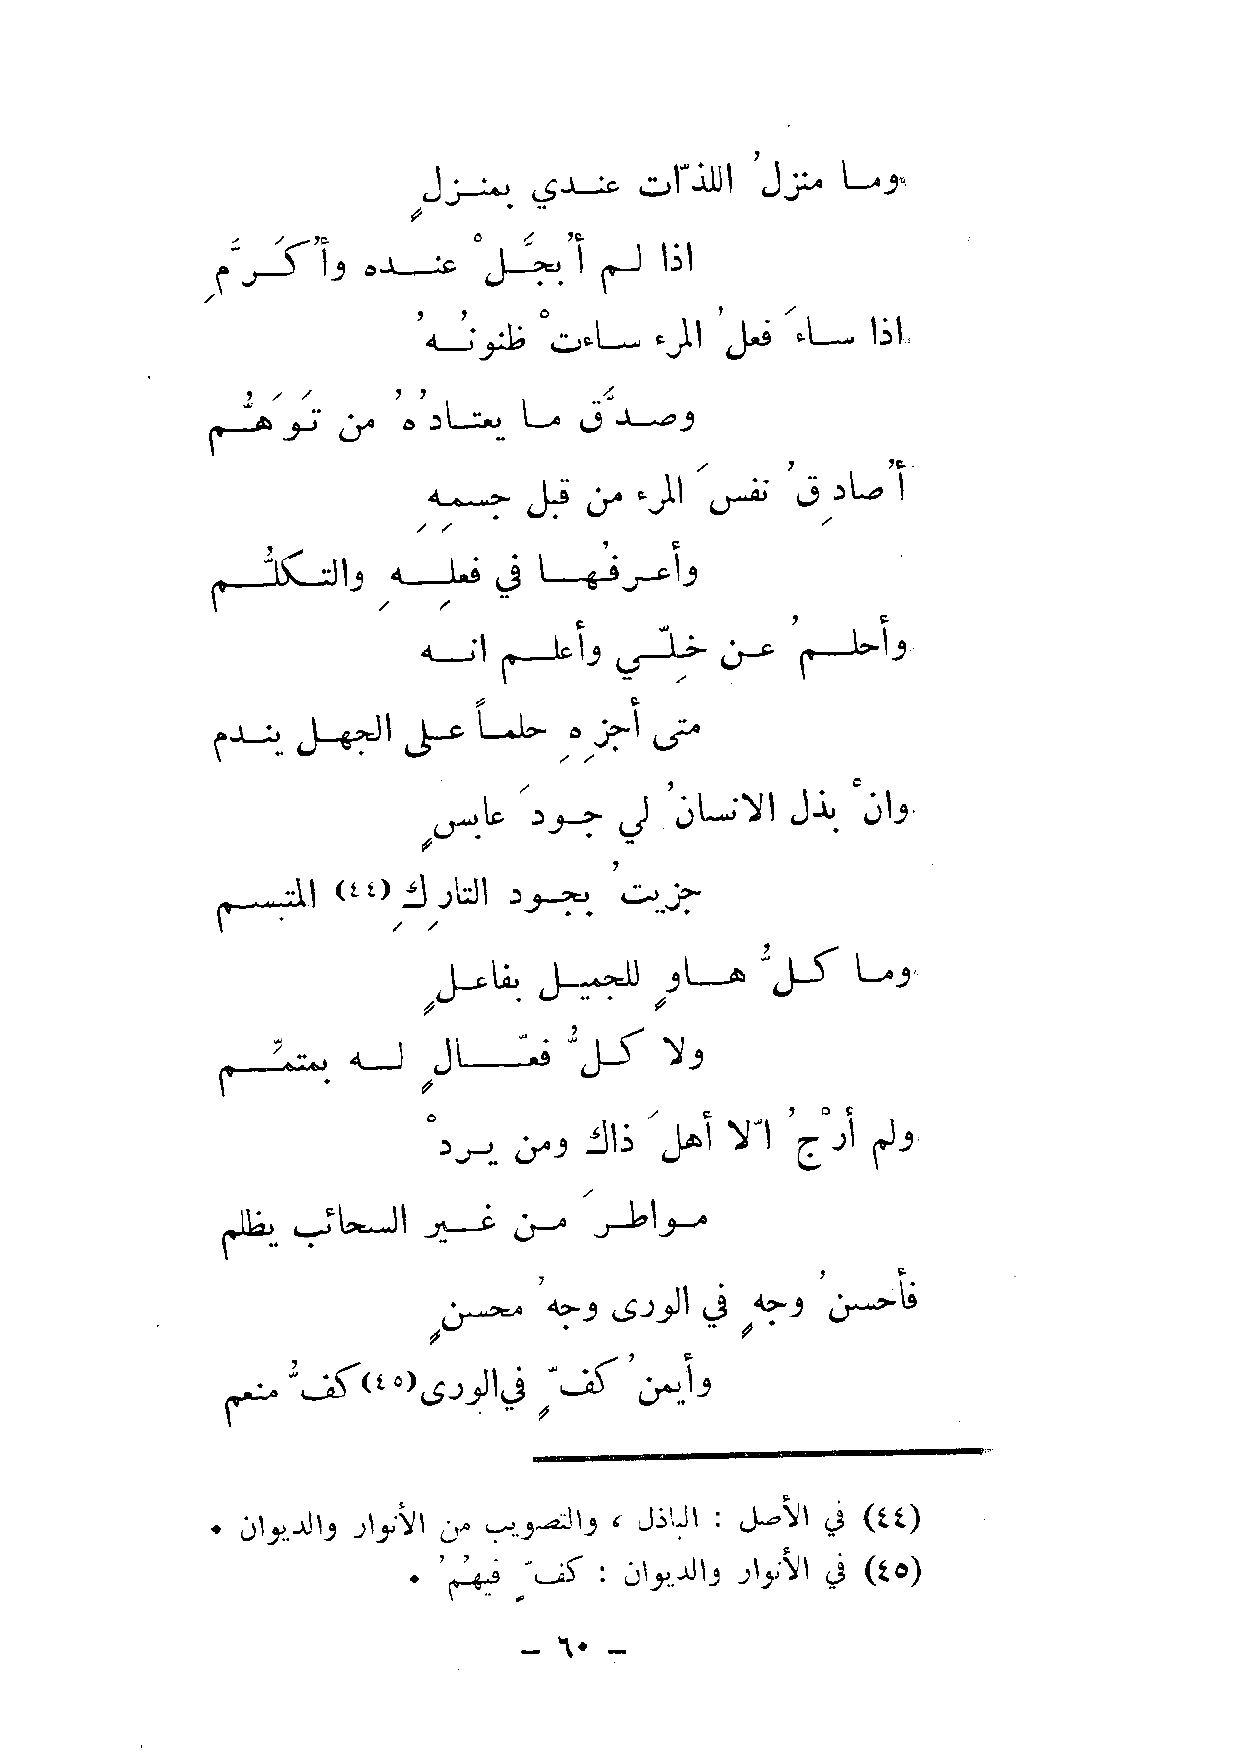 وما منزلُ اللذّات عندي بمنزلٍ
اذا لم أُبجَّلْ عنده وأُكَرَّمِ
اذا ساءَ فعلُ المرء ساءتْ ظنونُهُ
وصدَّق ما يعتادُهُ من تَوَهُّم
أُصادِقُ نفسَ المرء من قبل جسمِهِ
وأعرفُها في فعلِهِ والتكلُّم
وأحلمُ عن خِلّي وأعلم انه
متى أجزِهِ حلماً على الجهل يندم
وانْ بذل الانسانُ لي جودَ عابسٍ
جزيتُ بجود التارِكِ (٤٤) المتبسم
وما كلُّ هاوٍ للجميل بفاعلٍ
ولا كلُّ فعّالٍ له بمتمِّم
ولم أرْجُ الّا أهلَ ذاك ومن يردْ
مواطرَ من غير السحائب يظلم
فأحسنُ وجهٍ في الورى وجهُ محسنٍ
وأيمنُ كفٍّ في الورى (٤٥) كفُّ منعم
(٤٤) في الأصل : الباذل ، والتصويب من الأنوار والديوان ٠
(٤٥) في الأنوار والديوان : كفٍّ فيهُمُ ٠
– ٦٠ –